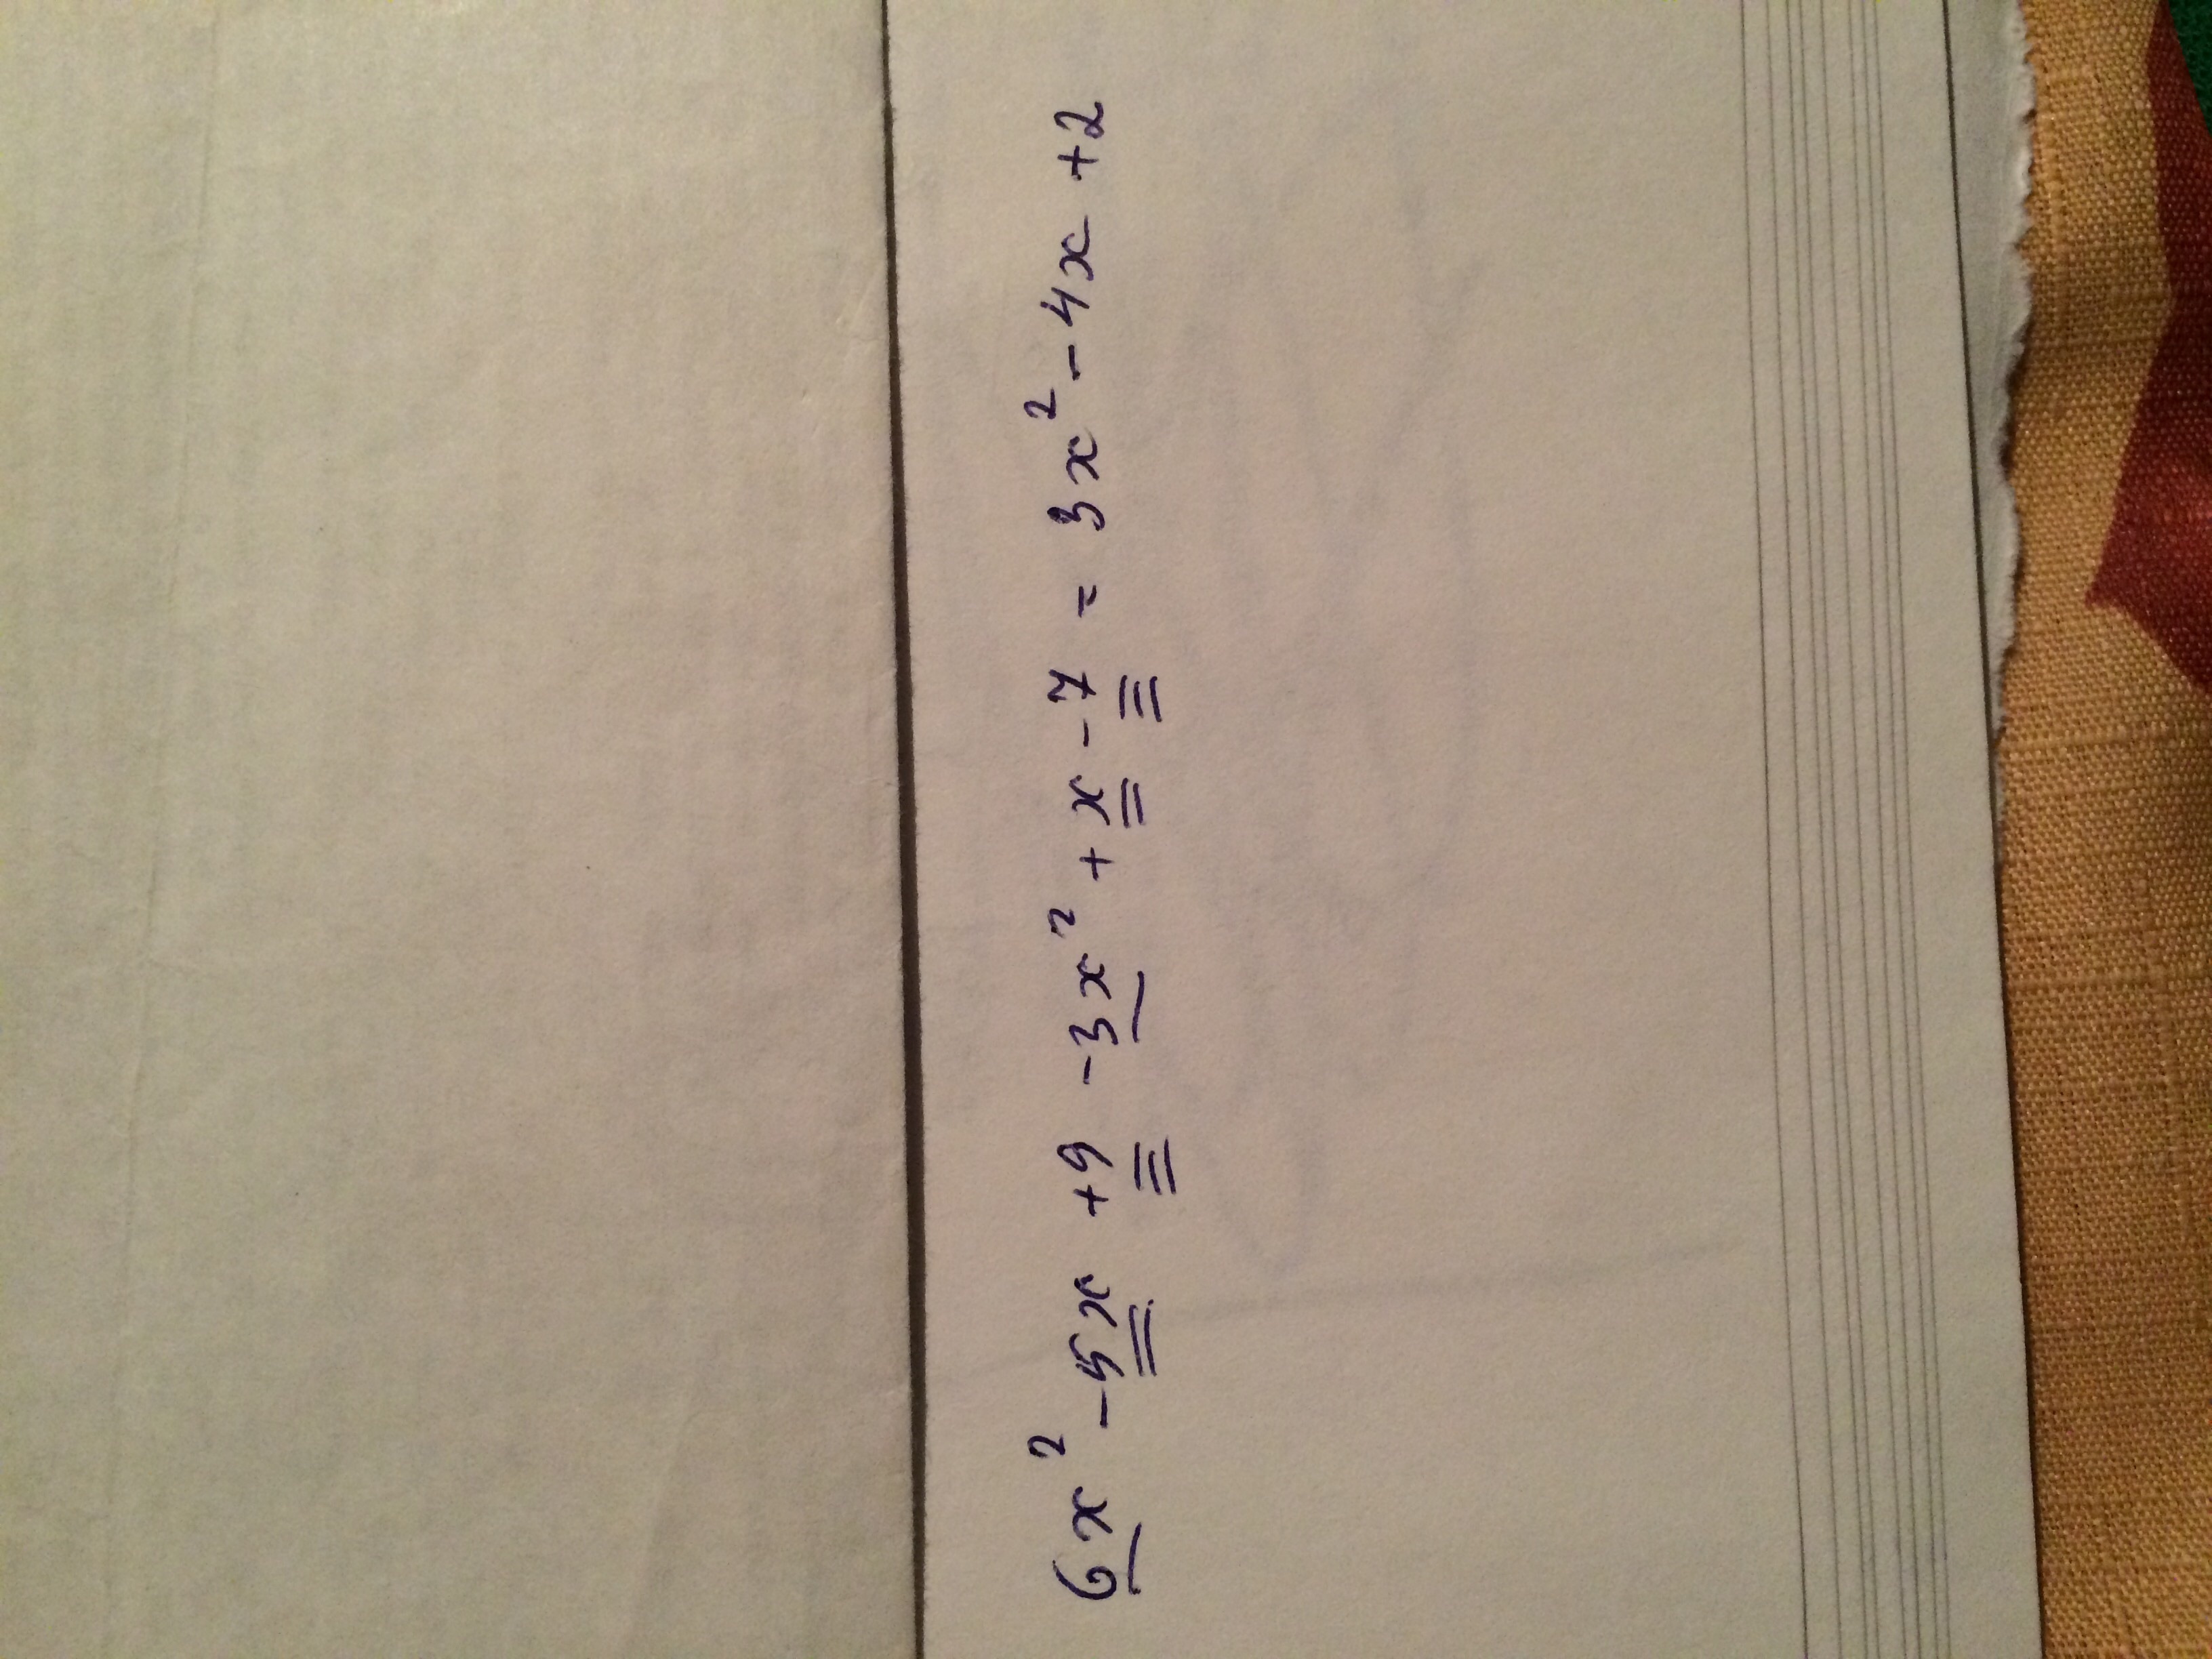 6x² -5x +9 -3x² + x -7 = 3x² - 4x +2